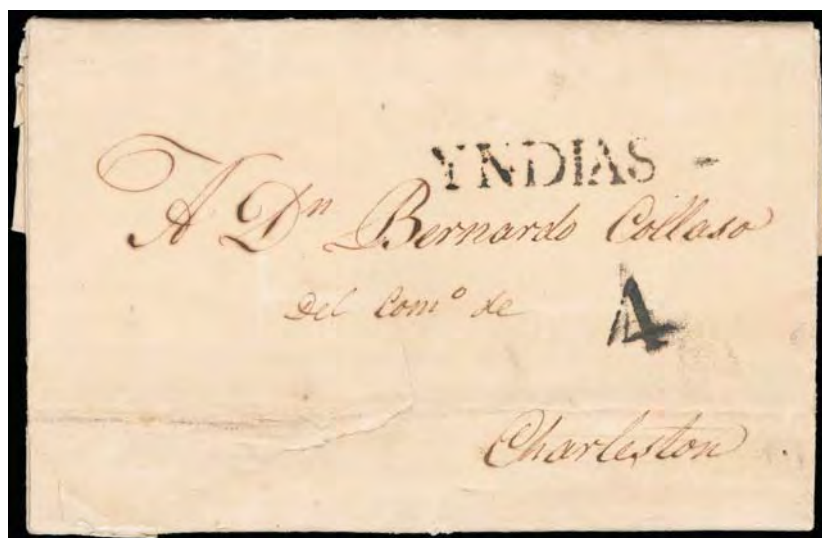 YNDIAS
A Dⁿ Bernardo Collaso
Del Comº de
A
Charleston